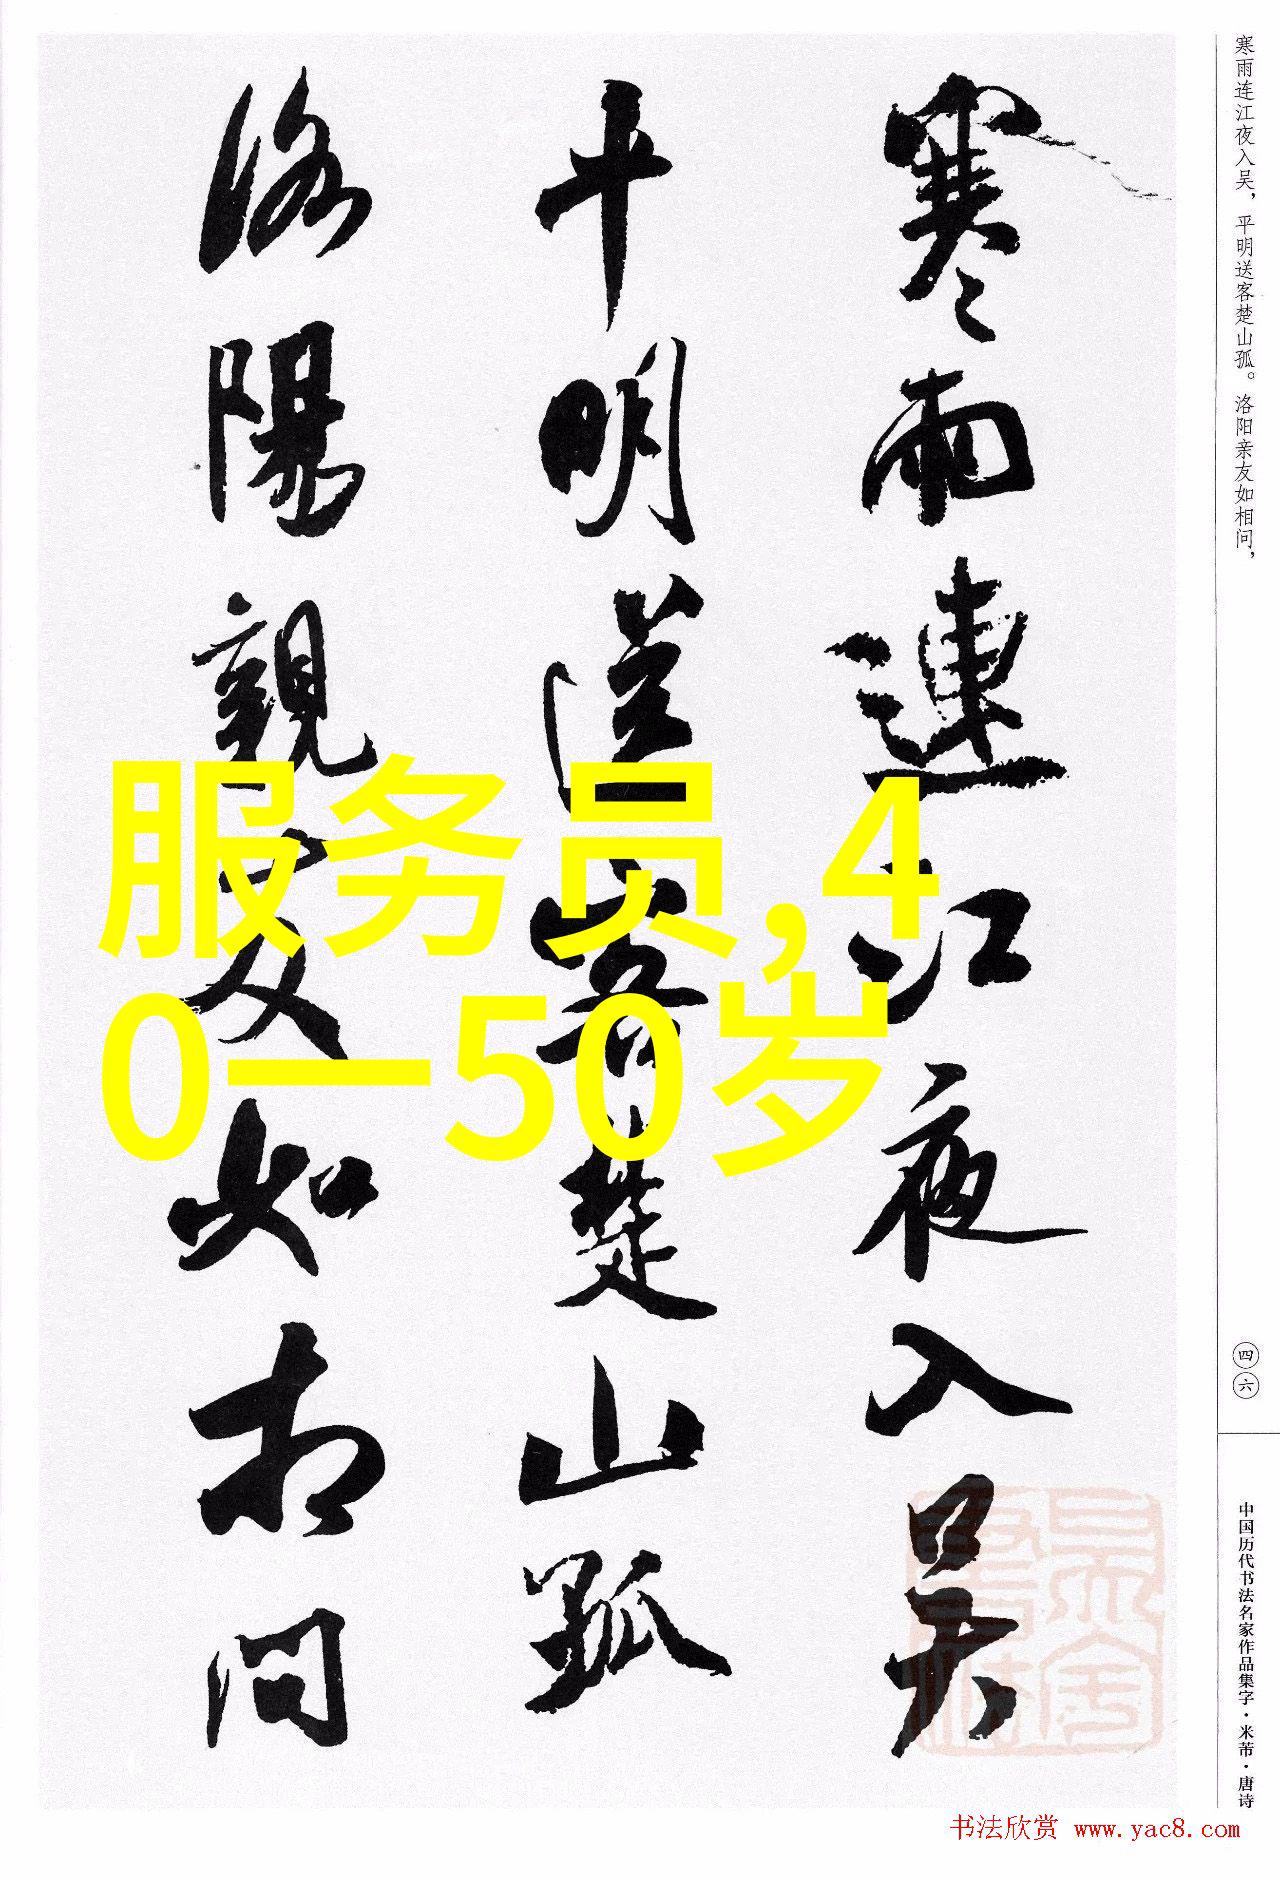 寒雨连江夜入吴，平明送客楚山孤。洛阳亲友如相问，
四六
中国历代书法名家作品集字·米芾·唐诗
寒雨連江夜入吳
平明送客楚山孤
洛陽親友如相問
服务员,4
0一50岁
书法欣赏 www.yac8.com